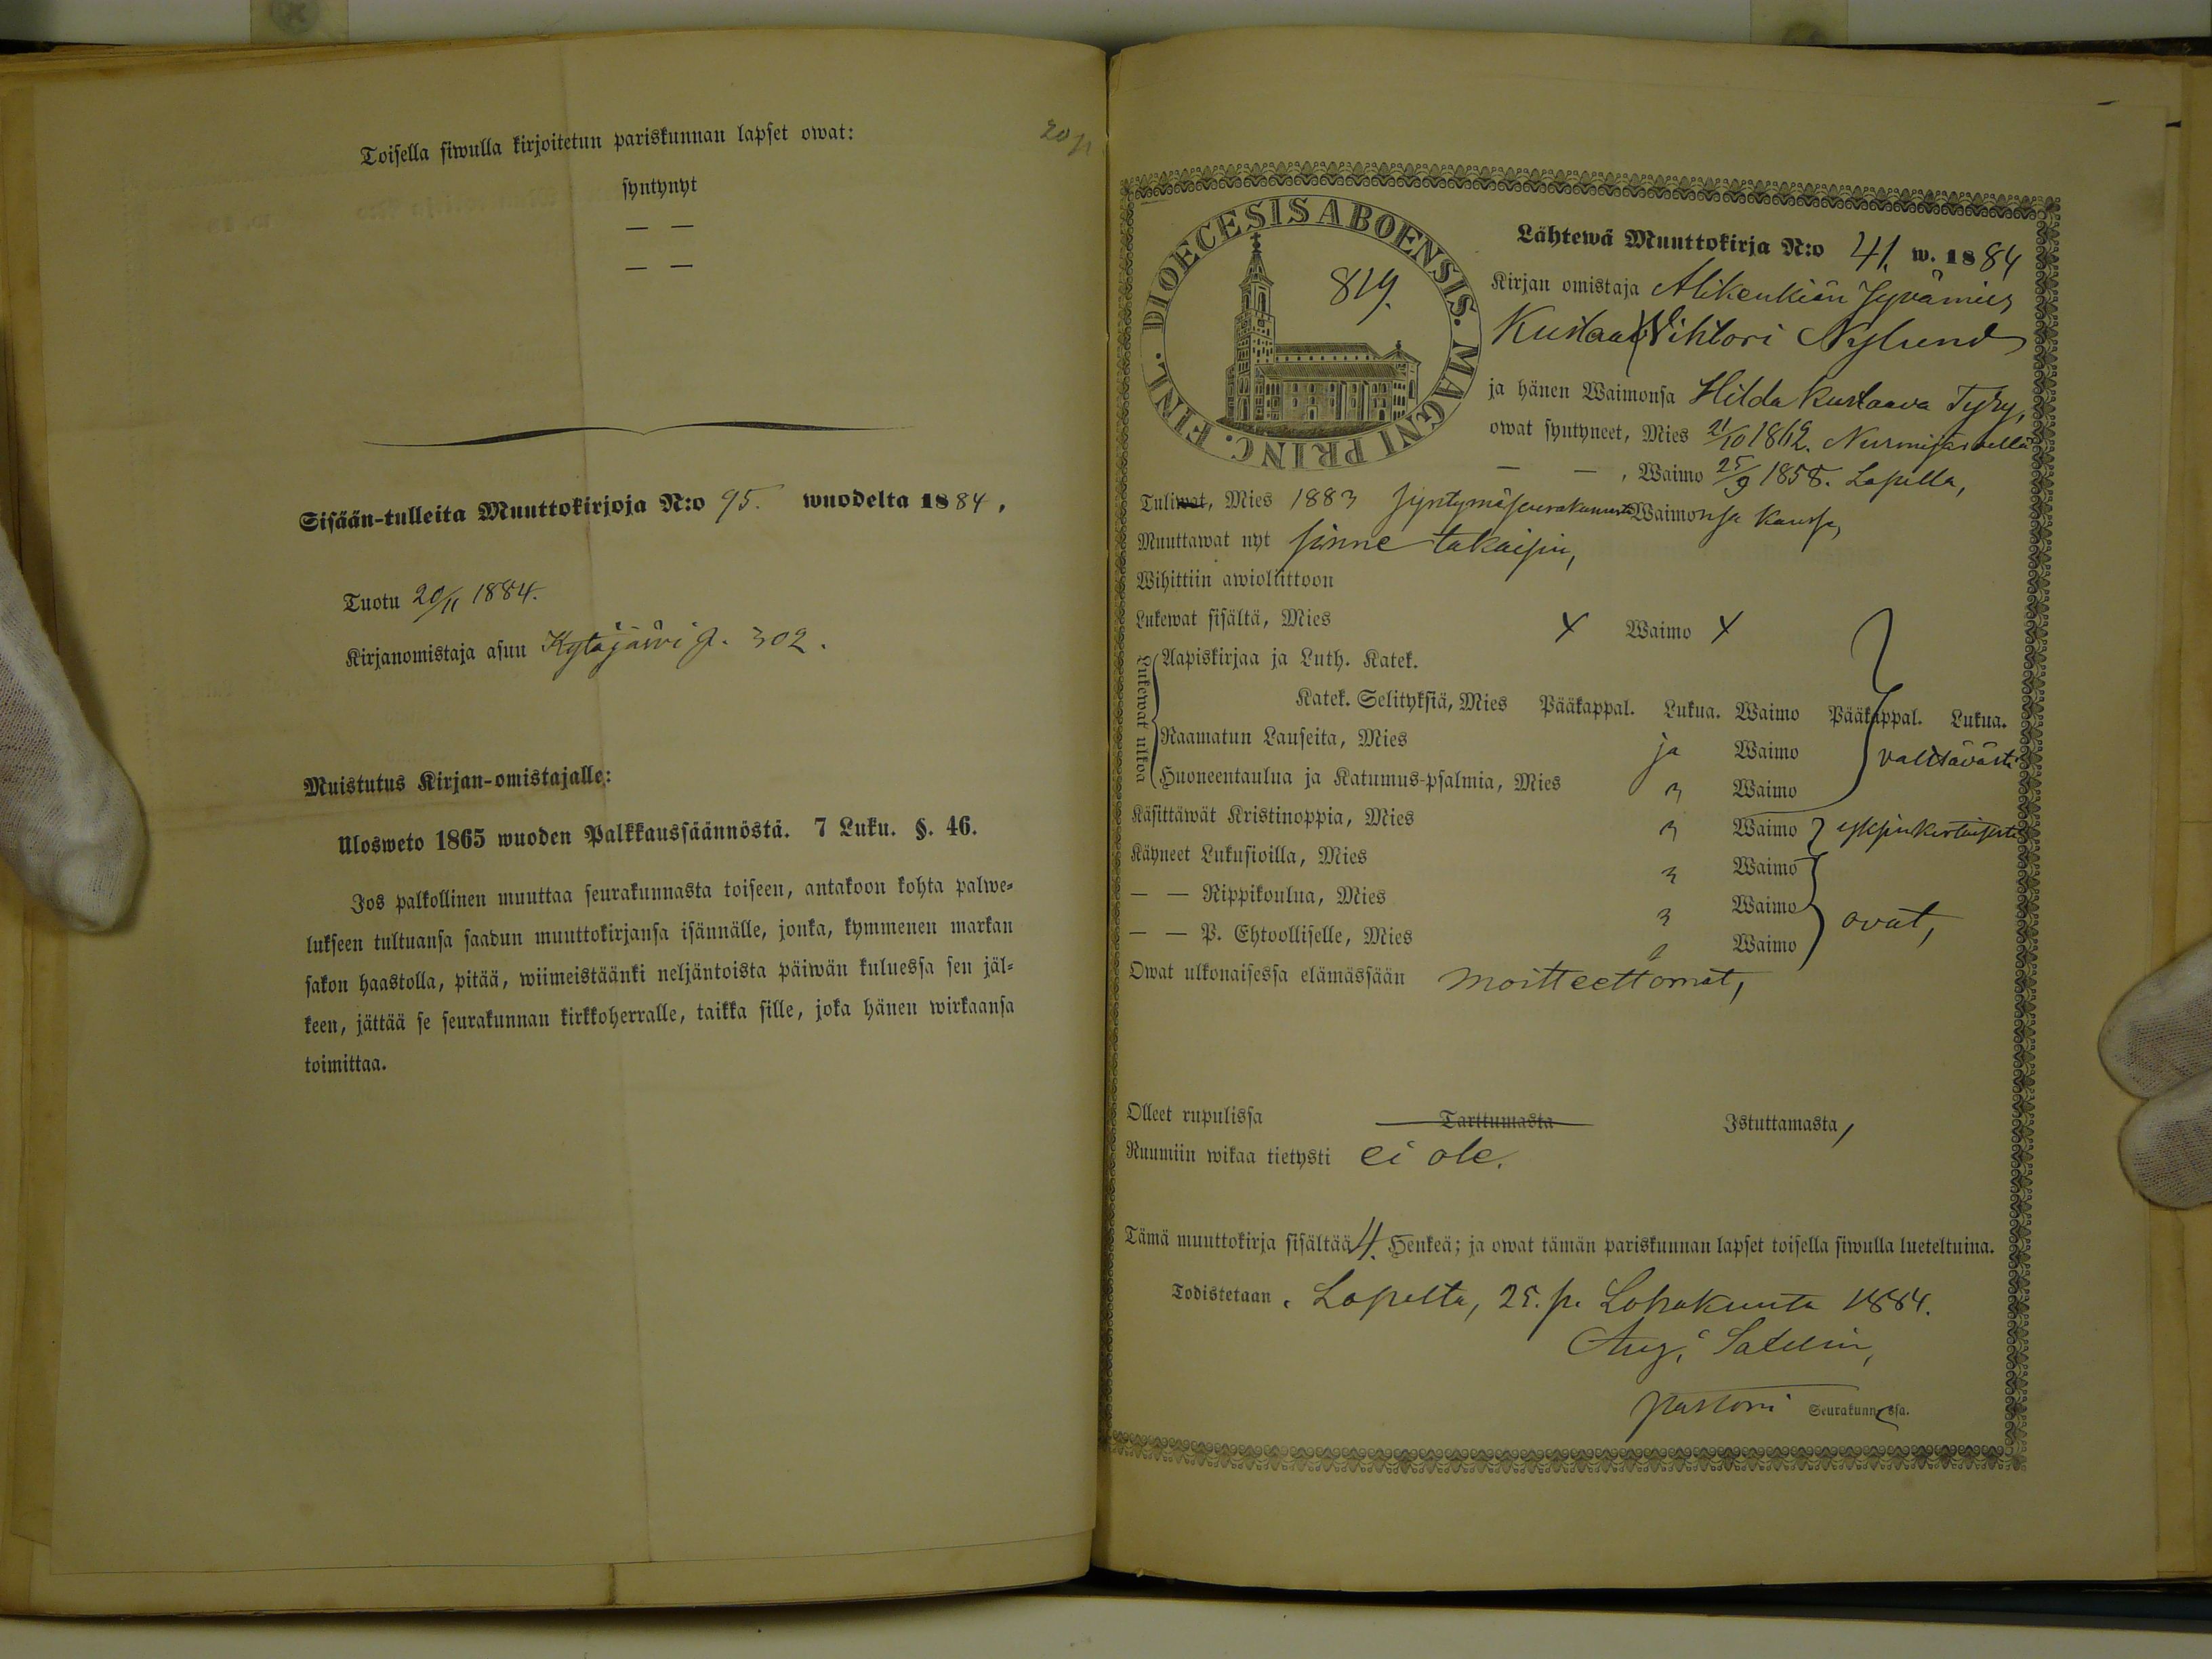 Toisella siwulla kirjoitetun pariskunnan lapset owat:
syntynyt
— —
— —
Sisään-tulleita Muuttokirjoja N:o 95. wuodelta 1884.
Tuotu 20/11 1884.
Kirjanomistaja asuu Kytäjärvi p. 302.
Muistutus Kirjan-omistajalle:
Ulosweto 1865 wuoden Palkkaussäännöstä. 7 Luku. §. 46.
Jos palkollinen muuttaa seurakunnasta toiseen, antakoon kohta palwe-
lukseen tultuansa saadun muuttokirjansa isännälle, jonka, kymmenen markan
sakon haastolla, pitää, wiimeistäänki neljäntoista päiwän kuluessa sen jäl-
keen, jättää se seurakunnan kirkkoherralle, taikka sille, joka hänen wirkaansa
toimittaa.
20/11
DIOECESIS ABOENSIS. MAGNI PRINC. FINL.
819.
Lähtewä Muuttokirja N:o 41. w. 1884
Kirjan omistaja Alikenkiän Jyvämies
Kustaa Vihtori Nylund
ja hänen Waimonsa Hilda Kustaava Tyry,
owat syntyneet, Mies 21/10 1862. Nurmijärvellä
— — , Waimo 25/9 1858. Lopella,
Tuliwat, Mies 1883 syntymäseurakunnasta Waimonsa kanssa,
Muuttawat nyt sinne takaisin,
Wihittiin awioliittoon
Lukewat sisältä, Mies x Waimo x
Lukewat ulkoa
Aapiskirjaa ja Luth. Katek.
Katek. Selityksiä, Mies Pääkappal. Lukua. Waimo Pääkappal. Lukua.
Raamatun Lauseita, Mies ja Waimo välttävästi
Huoneentaulua ja Katumus-psalmia, Mies " Waimo
Käsittäwät Kristinoppia, Mies " Waimo yksinkertaisesti
Käyneet Lukusioilla, Mies " Waimo
— — Rippikoulua, Mies " Waimo ovat,
— — P. Ehtoolliselle, Mies " Waimo
Owat ulkonaisessa elämässään moitteettomat,
Olleet rupulissa Tarttumasta Istuttamasta,
Ruumiin wikaa tietysti ei ole.
Tämä muuttokirja sisältää 4. Henkeä; ja owat tämän pariskunnan lapset toisella siwulla lueteltuina.
Todistetaan, Lopelta, 25. p. Lokakuuta 1884.
Aug.
pastori Seurakunnassa.